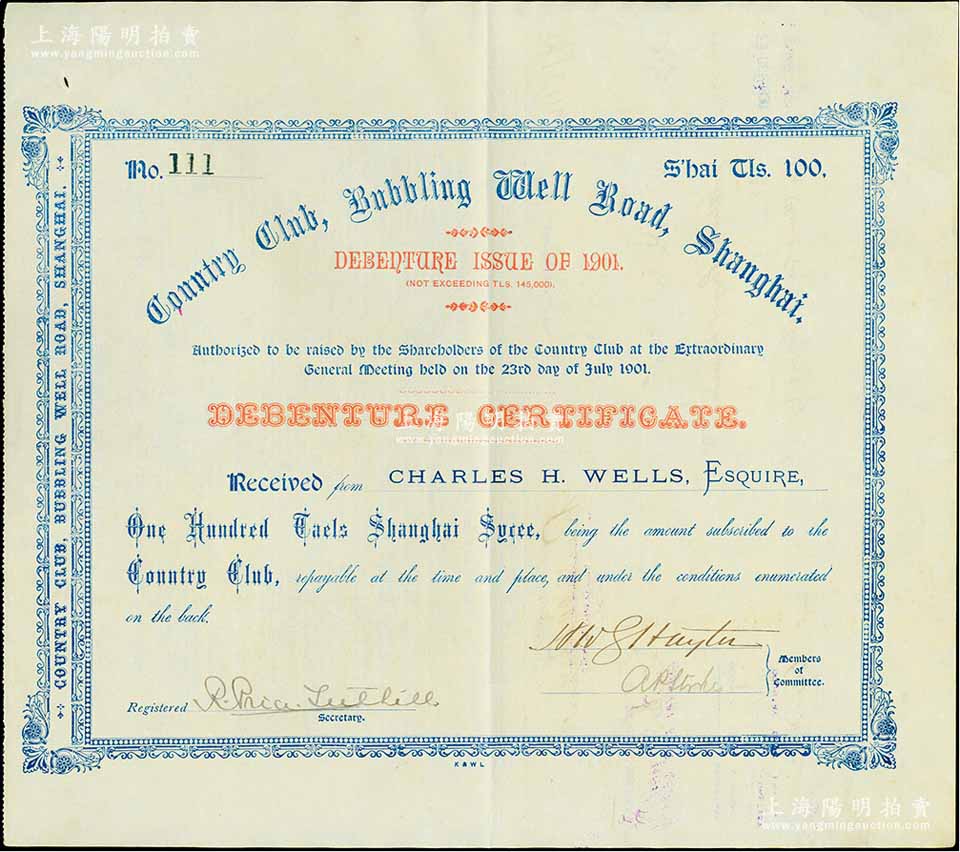 上海陽明拍賣
www.yangmingauction.com
COUNTRY CLUB, BUBBLING WELL ROAD, SHANGHAI.
No. 111
S'hai Tls. 100,
Country Club, Bubbling Well Road, Shanghai.
DEBENTURE ISSUE OF 1901.
(NOT EXCEEDING TLS. 145,000).
Authorized to be raised by the Shareholders of the Country Club at the Extraordinary
General Meeting held on the 23rd day of July 1901.
DEBENTURE CERTIFICATE.
上海陽明拍賣
www.yangmingauction.com
Received from CHARLES H. WELLS, ESQUIRE,
One Hundred Taels Shanghai Sycee, being the amount subscribed to the
Country Club, repayable at the time and place, and under the conditions enumerated
on the back.
Members
of
Committee.
Registered
Secretary.
K & W L
上海陽明拍賣
www.yangmingauction.com